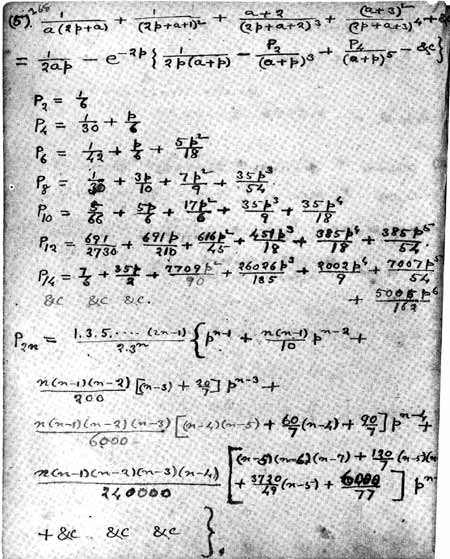 (5). 260 1/(a(2p+a)) + 1/(2p+a+1)² + (a+2)/(2p+a+2)³ + (a+3)²/(2p+a+3)⁴ + &c
= 1/(2ap) - e^(-2p) { 1/(2p(a+p)) - P₂/(a+p)³ + P₄/(a+p)⁵ - &c }
P₂ = 1/6
P₄ = 1/30 + p/6
P₆ = 1/42 + p/6 + 5p²/18
P₈ = 1/30 + 3p/10 + 7p²/9 + 35p³/54
P₁₀ = 5/66 + 5p/6 + 17p²/6 + 35p³/9 + 35p⁴/18
P₁₂ = 691/2730 + 691p/210 + 616p²/45 + 451p³/18 + 385p⁴/18 + 385p⁵/54.
P₁₄ = 7/6 + 35p/2 + 7709p²/90 + 26026p³/135 + 2002p⁴/9 + 7007p⁵/54
&c &c &c. + 5005p⁶/162
P₂ₙ = 1.3.5.....(2n-1)/2.3ⁿ { pⁿ⁻¹ + n(n-1)/10 pⁿ⁻² +
n(n-1)(n-2)/200 [(n-3) + 20/7] pⁿ⁻³ +
n(n-1)(n-2)(n-3)/6000 [(n-4)(n-5) + 60/7 (n-4) + 90/7] pⁿ⁻⁴ +
n(n-1)(n-2)(n-3)(n-4)/240000 [(n-5)(n-6)(n-7) + 120/7 (n-5)(n
+ 3720/49 (n-5) + 6000/77 ] pⁿ⁻
+ &c &c &c }.